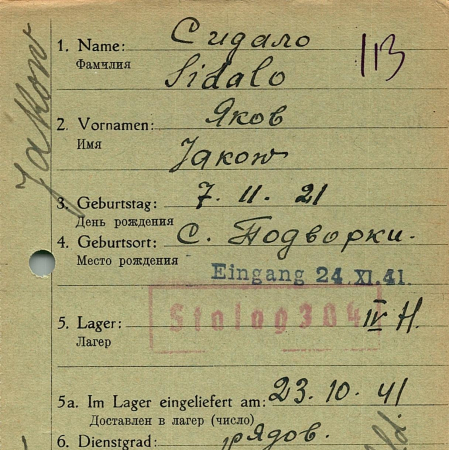 Jakow
113
1. Name: Сидало
Фамилия Sidalo
2. Vornamen: Яков
Имя Jakow
3. Geburtstag: 7. 11. 21
День рождения
4. Geburtsort: с. Подворки.
Место рождения
Eingang 24. XI. 41.
Stalag 304
5. Lager: IV H.
Лагер
5a. Im Lager eingeliefert am: 23. 10. 41
Доставлен в лагер (число)
6. Dienstgrad: рядов.